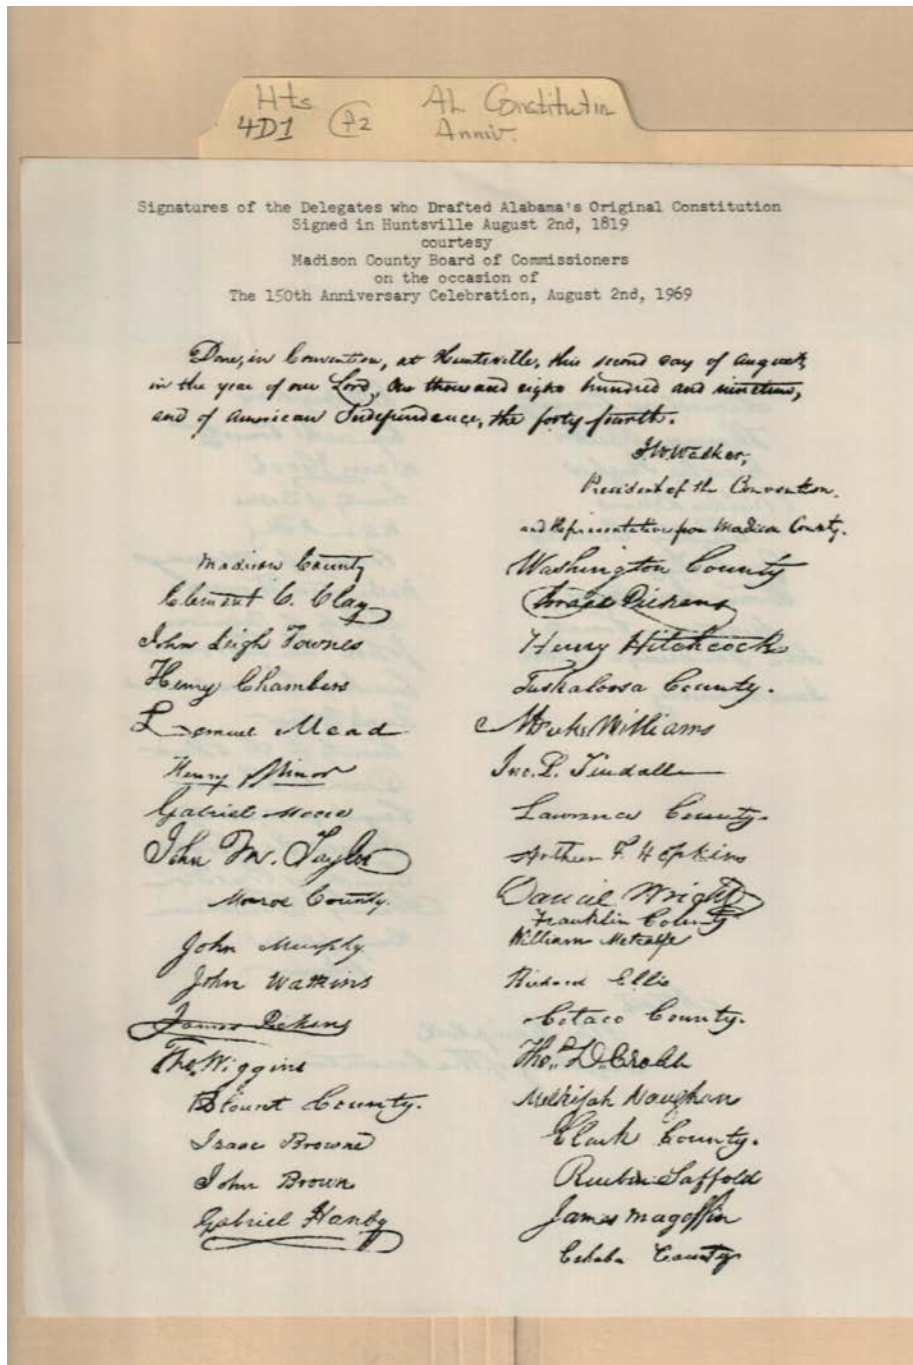 Hts AL Constitutin
4D1 P2 Anniv.
Signatures of the Delegates who Drafted Alabama's Original Constitution
Signed in Huntsville August 2nd, 1819
courtesy
Madison County Board of Commissioners
on the occasion of
The 150th Anniversary Celebration, August 2nd, 1969
Done, in Convention, at Huntsville, this second day of August,
in the year of our Lord, One thousand eight hundred and nineteen,
and of American Independence, the forty fourth.
J.W. Walker,
President of the Convention.
and Representative from Madison County.
Madison County
Clement C. Clay
John Leigh Townes
Henry Chambers
Lemuel Mead
Henry Minor
Gabriel Moore
John M. Taylor
Monroe County.
John Murphy
John Watkins
James Pickens
Tho. Wiggins
Blount County.
Isaac Browne
John Brown
Gabriel Hanby
Washington County
Israel Pickens
Henry Hitchcock
Tuskaloosa County.
Williams
Jno. L. Tindall
Lawrence County.
Arthur F. Hopkins
Daniel Wright
Franklin County
William Metcalfe
Richard Ellis
Cotaco County.
Tho.s D. Crabb
Melkijah Vaughan
Clark County.
Reuben Saffold
James Magoffin
Cahaba County